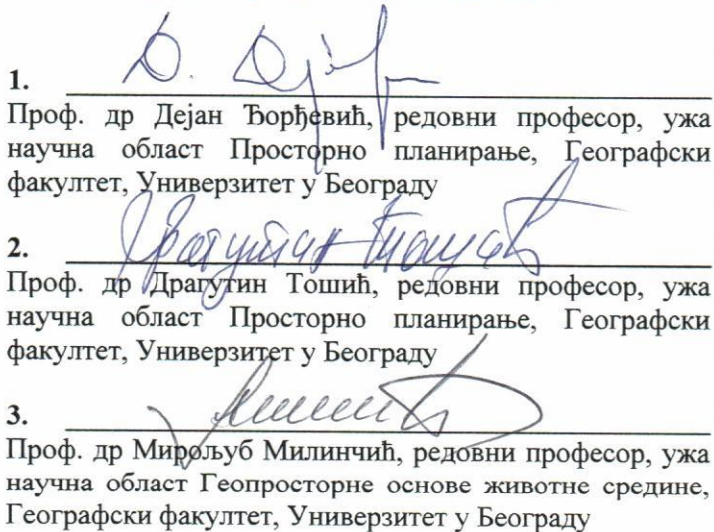 1.
Проф. др Дејан Ђорђевић, редовни професор, ужа
научна област Просторно планирање, Географски
факултет, Универзитет у Београду
2.
Проф. др Драгутин Тошић, редовни професор, ужа
научна област Просторно планирање, Географски
факултет, Универзитет у Београду
3.
Проф. др Мирољуб Милинчић, редовни професор, ужа
научна област Геопросторне основе животне средине,
Географски факултет, Универзитет у Београду